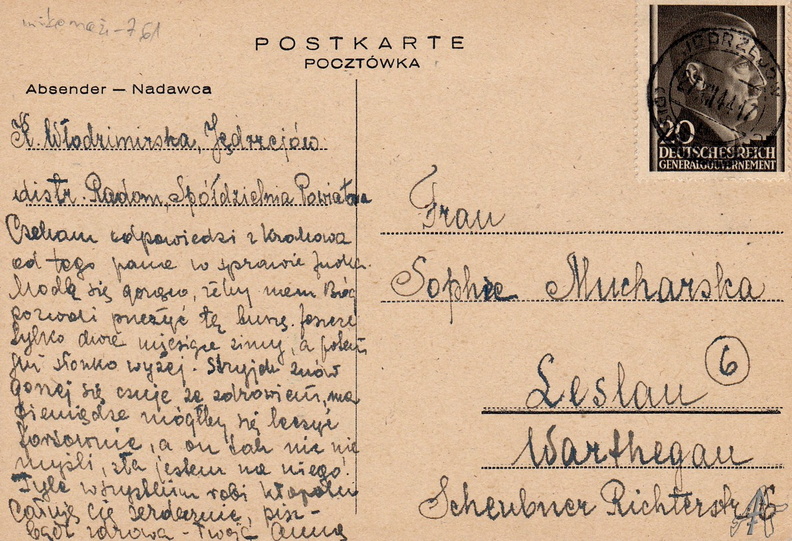 POSTKARTE
POCZTÓWKA
Absender — Nadawca
K. Włodzimirska, Jędrzejów
distr. Radom, Spółdzielnia Powiatowa
Czekam odpowiedzi z Krakowa
od tego pana w sprawie
Modlę się gorąco, żeby nam Bóg
pozwolił przeżyć tę burzę. Jeszcze
tylko dwa miesiące zimy, a potem
już słonko wyżej. Stryjek znów
gorzej się czuje ze zdrowiem, ma
pieniądze mógłby się leczyć
forsownie, a on tak nic nie
myśli, zła jestem na niego!
Tyle wszystkim robi kłopotu
Całuję Cię serdecznie, pisz-
bądź zdrowa - Twoja Anna
JĘDRZEJÓW
20
DEUTSCHES REICH
GENERALGOUVERNEMENT
Frau
Sophie Mucharska
6
Leslau
Warthegau
Scheubner Richterstr.